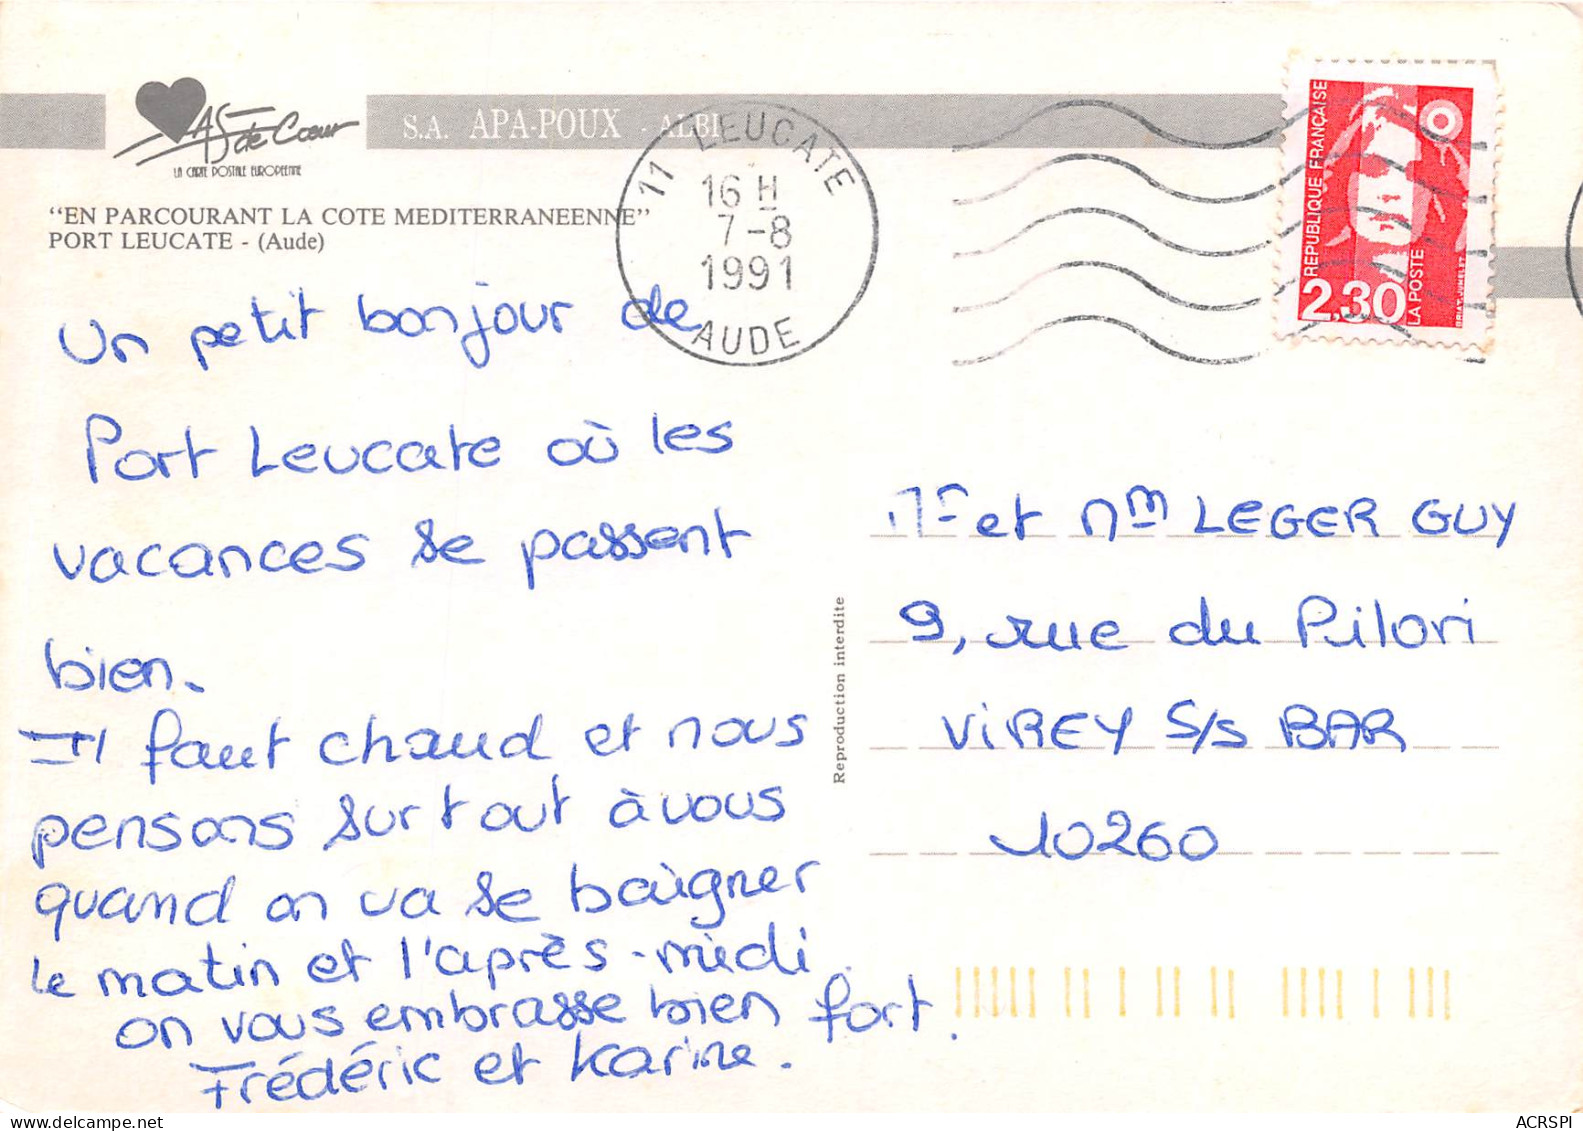 AS de Cœur
LA CARTE POSTALE EUROPEENNE
S.A. APA-POUX - ALBI
"EN PARCOURANT LA COTE MEDITERRANEENNE"
PORT LEUCATE - (Aude)
11 LEUCATE
16 H
7-8
1991
AUDE
REPUBLIQUE FRANÇAISE
2,30
LA POSTE
BRIAT-JUMELET
Un petit bonjour de
Port Leucate où les
vacances se passent
bien.
Il faut chaud et nous
pensons surtout à vous
quand on va se baigner
le matin et l'après-midi.
on vous embrasse bien fort.
Frédéric et Karine.
Reproduction interdite
Mr et Mm LEGER GUY
9, rue du Pilori
ViREY S/S BAR
10260
ACRSPI